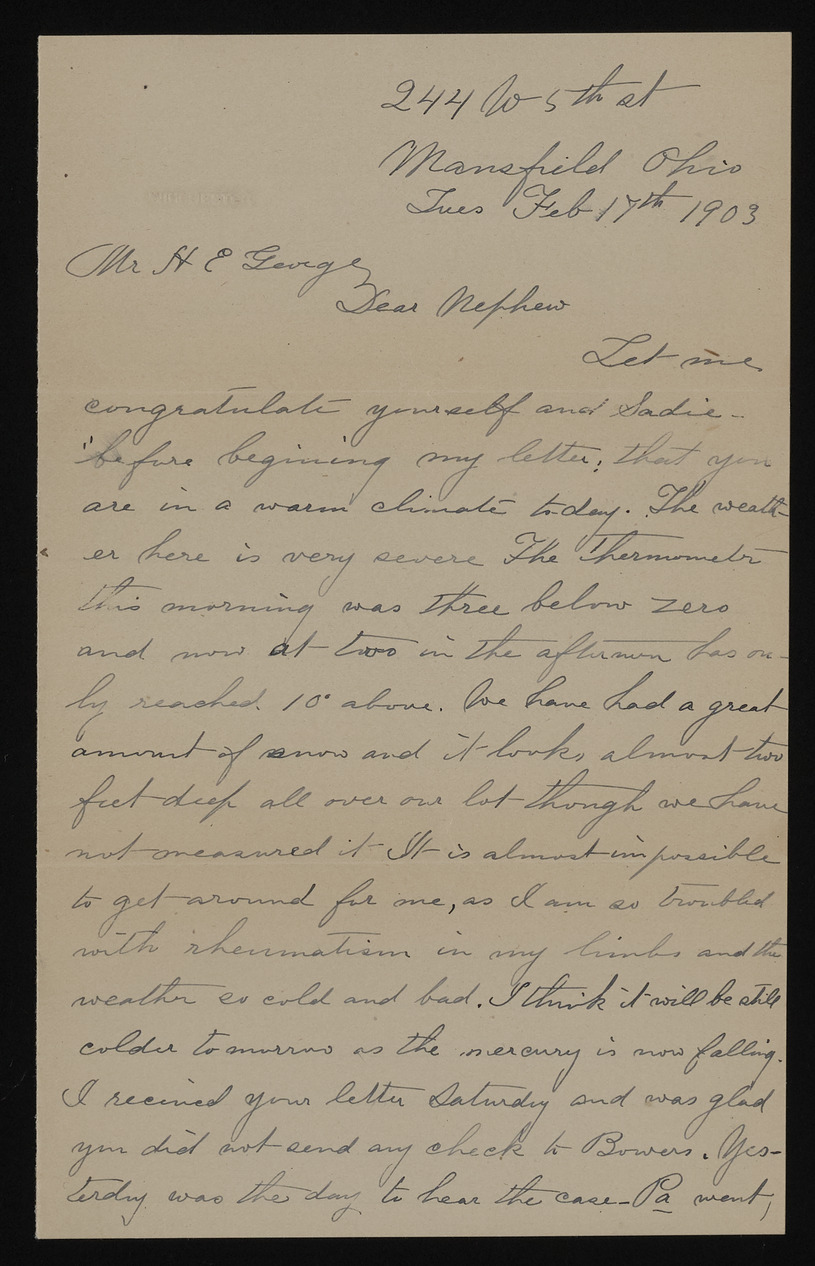 244 W 5th st
Mansfield Ohio
Tues Feb 17th 1903
Mr H E George
Dear Nephew
Let me
congratulate yourself and Sadie -
before begining my letter; that you
are in a warm climate to-day. The weath-
er here is very severe The Thermometer
this morning was three below zero
and now at two in the afternoon has on-
ly reached. 10° above. We have had a great
amount of snow and it looks almost two
feet deep all over our lot though we have
not measured it It is almost impossible
to get around for me, as I am so troubled
with rheumatism in my limbs and the
weather so cold and bad. I think it will be still
colder tomorrow as the mercury is now falling.
I recieved your letter Saturday and was glad
you did not send any check to Bowers. Yes-
terday was the day to hear the case - Pa went,